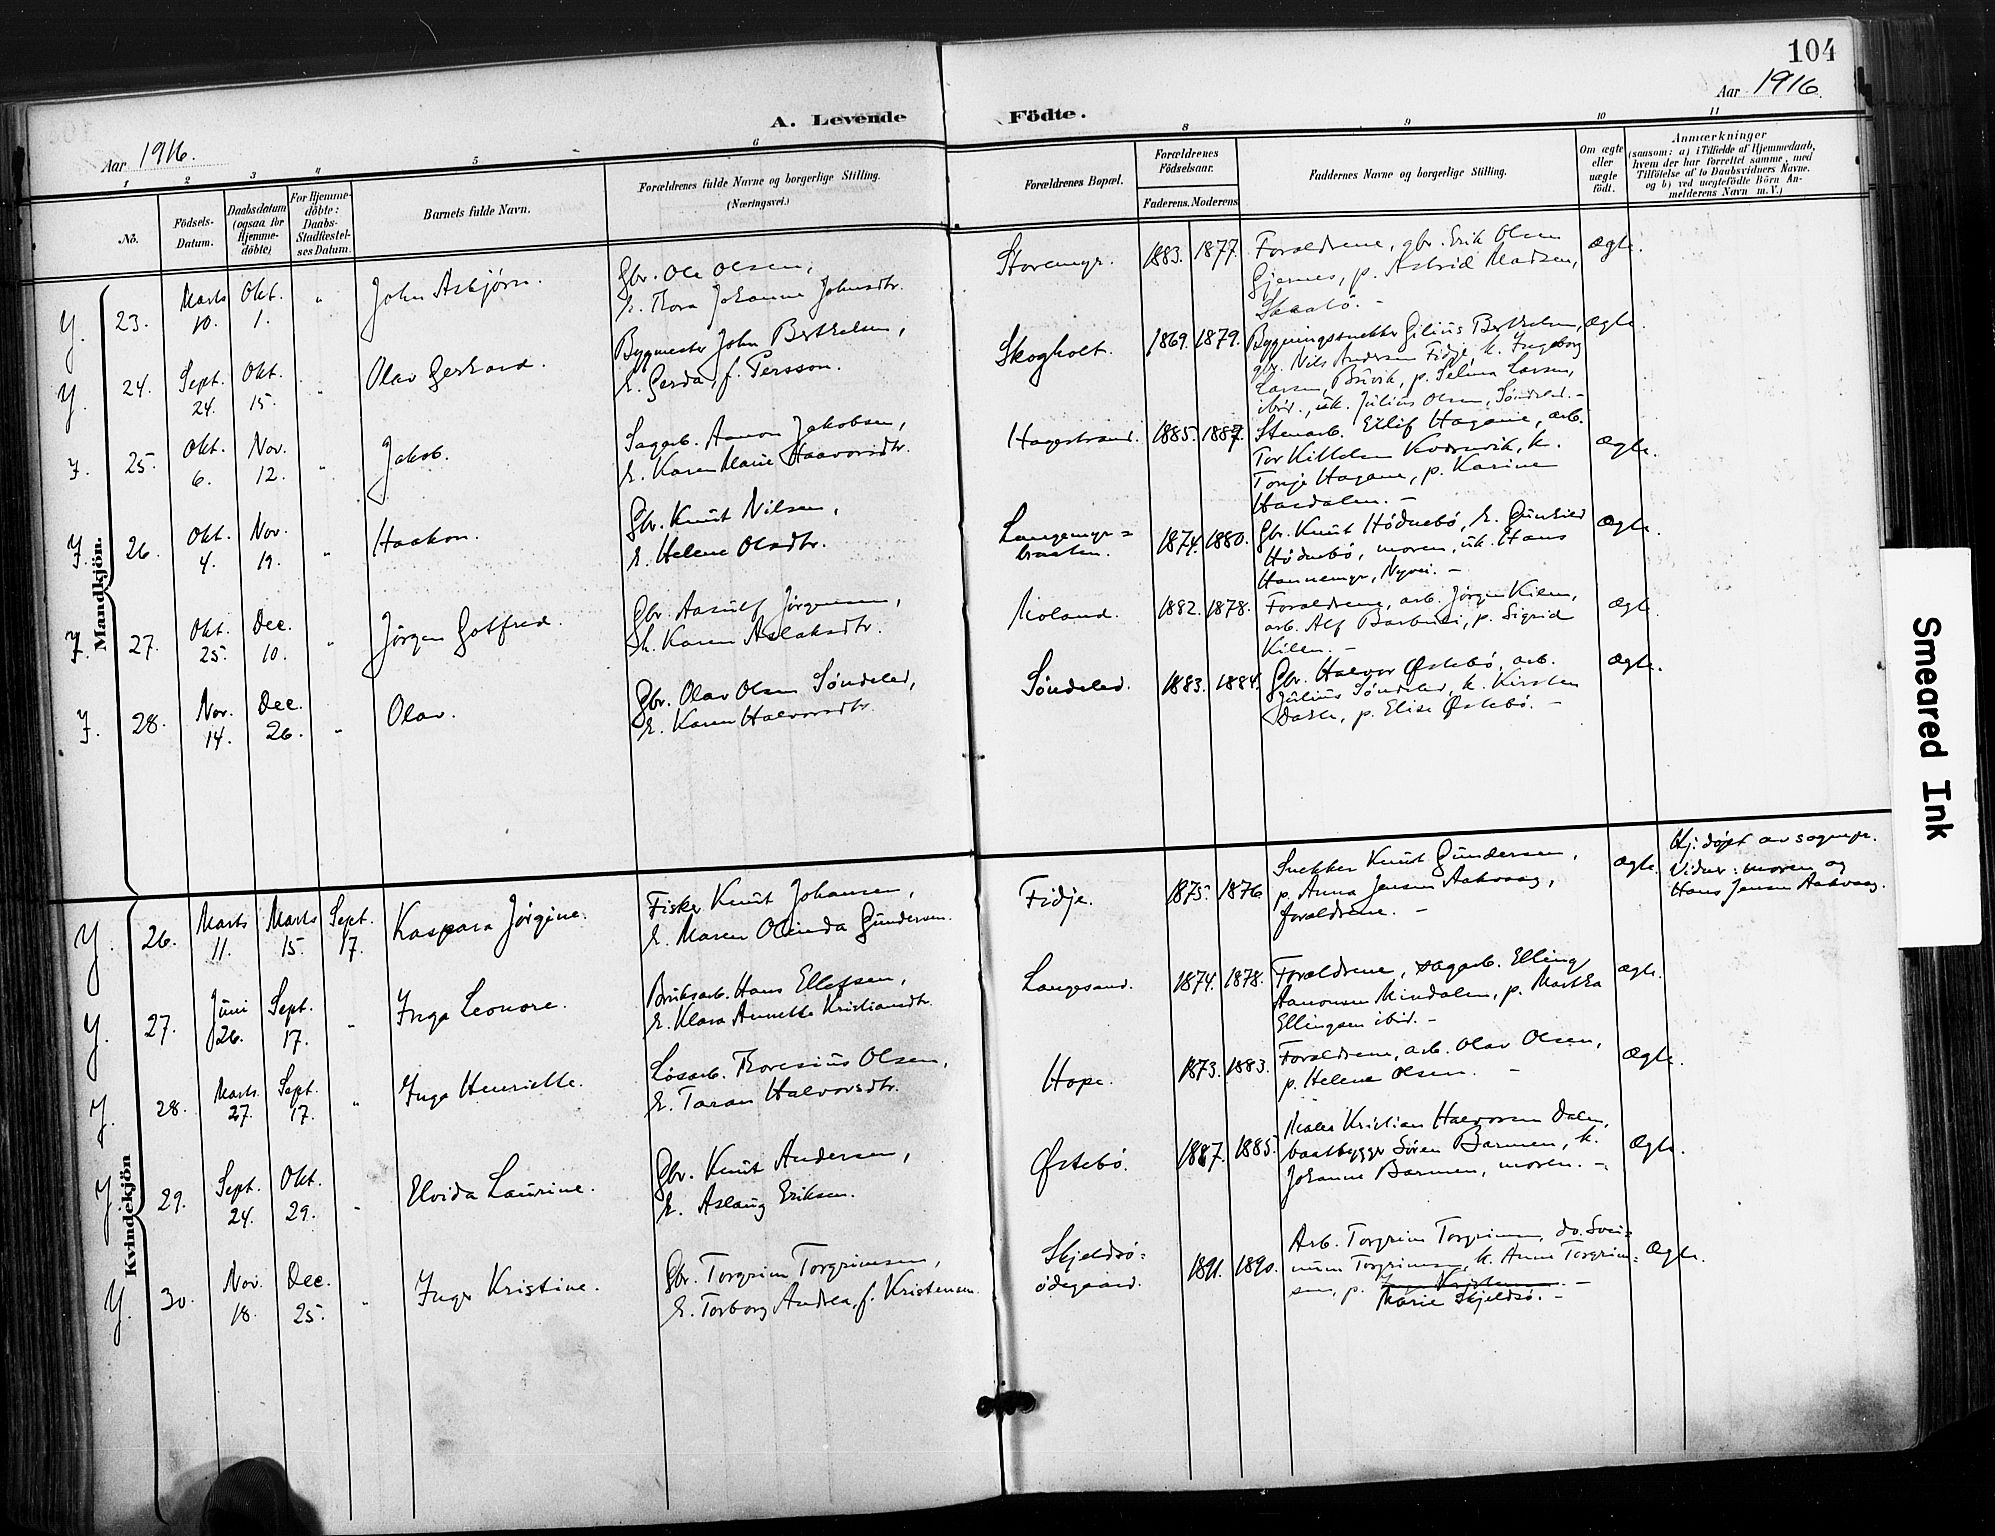 104
Aar 1916.
Aar 1916.
A. Levende Födte.
1 2 3 4 5 6 8 9 10 11
No.
Födsels-Datum.
Daabsdatum (ogsaa for Hjemmedöbte)
For Hjemmedöbte: Daabs-Stadfæstelses Datum.
Barnets fulde Navn.
Forældrenes fulde Navne og borgerlige Stilling.
(Næringsvei.)
Forældrenes Bopæl.
Forældrenes Födselsaar.
Faderens. Moderens.
Faddernes Navne og borgerlige Stilling.
Om ægte eller uægte födt.
Anmærkninger
(saasom: a) i Tilfælde af Hjemmedaab,
hvem der har forrettet samme, med
Tilföielse af to Daabsvidners Navne.
og b) ved uægtefödte Börn An-
melderens Navn m. V.)
Mandkjön.
23. Marts 10. Okt. 1. " John Asbjørn.
Gbr. Ole Olsen,
h. Thora Johanne Johnsdtr.
Storemyr. 1883. 1877.
Forældrene, gbr. Erik Olsen
Gjernes, p. Astrid Madsen,
Skaabø. -
ægte.
24. Sept. 24. Okt. 15. " Olav Gerhard.
Bygmester John Berthelsen,
h. Gerda, f. Persson.
Skogholt. 1869. 1879.
Bygningssnekker Gilius Berthelsen,
gbr. Nils Andersen Fidje, k. Ingeborg
Larsen, Buvik, p. Selma Larsen,
ibid., uk. Julius Olsen, Søndeled. -
ægte.
25. Okt. 6. Nov. 12. " Jakob.
Sagarb. Aanon Jakobsen,
h. Karen Marie Haavorsdtr.
Hagestrand. 1885. 1887.
Stenarb. Eilif Hagane, arb.
Tor Kittelsen Kvernvik, k.
Tonje Hagane, p. Karine
ægte.
26. Okt. 4. Nov. 19. " Haakon.
Gbr. Knut Nilsen,
h. Helene Olsdtr.
Langemyr=
braaten. 1874. 1880.
Gbr. Knut Hødnebø, h. Gunhild
Hødnebø, moren, uk. Hans
Hannemyr, Nyvei. -
ægte.
27. Okt. 25. Dec. 10. " Jørgen Gotfred.
Gbr. Aasulf Jørgensen,
h. Karen Aslaksdtr.
Moland. 1882. 1878.
Forældrene, arb. Jørgen Kilen,
arb. Alf Barbuvei, p. Sigrid
Kilen. -
ægte.
28. Nov. 14. Dec. 26. " Olav.
Gbr. Olav Olsen Søndeled,
h. Karen Halvorsdtr.
Søndeled. 1883. 1884.
Gbr. Halvor Østebø, arb.
Julius Søndeled, k. Kirsten
p. Elise Østebø. -
ægte.
Kvindekjön
26. Marts 11. Marts 15. Sept. 17. Kaspara Jørgine.
Fisker Knut Johansen,
h. Maren Olinda Gundersen.
Fidje. 1875. 1876
Snekker Knut Gundersen,
p. Anna Jensen Aakvaag,
forældrene. -
ægte.
Hj. døpt av sognepr.
Vidner: moren og
Hans Jensen Aakvaag.
27. Juni 26. Sept. 17. " Inga Leonore.
Bruksarb. Hans Ellefsen,
h. Klara Annette Kristiansdtr.
Langesand. 1874. 1878.
Forældrene, sagarb. Elling
Aanonsen Mindalen, p. Martha
Ellingsen ibid. -
ægte.
28. Marts 27. Sept. 17. " Inga Henriette.
Løsarb. Thoresius Olsen,
h. Taran Halvorsdtr.
Hope. 1873. 1883.
Forældrene, arb. Olav Olsen,
p. Helene Olsen. -
ægte.
29. Sept. 24. Okt. 29. " Elvida Laurine.
Gbr. Knut Andersen,
h. Aslaug Eriksen.
Østebø. 1887. 1885.
Maler Kristian Halvorsen Dalen,
baatbygger Søren Barmen, k.
Johanne Barmen, moren. -
ægte.
30. Nov. 18. Dec. 25. " Inger Kristine.
Gbr. Torgrim Torgrimsen,
h. Torborg Andrea, f. Kristensen
Skjeldsø=
ødegaard. 1891. 1890.
Arb. Torgrim Torgrimsen, do. Svei-
num Torgrimsen, k. Anne Torgrim=
sen, p. Inga Kristensen. -
Marie Skjeldsø. -
ægte.
Smeared Ink